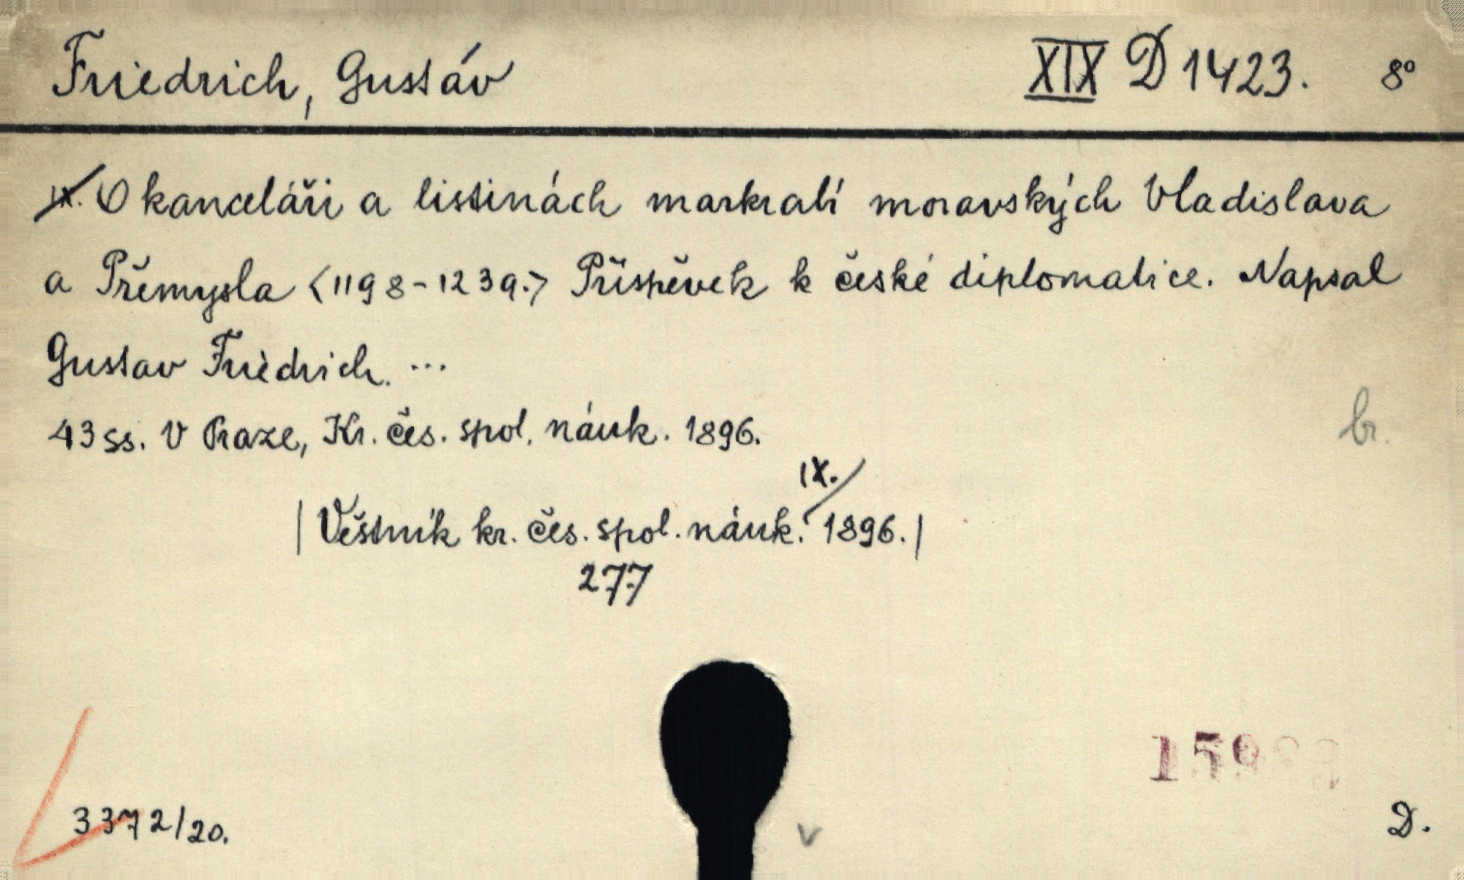 Friedrich, Gustáv XIX D 1423. 8°
IX. O kanceláři a listinách markrabí moravských Vladislava
a Přemysla <1198-1239.> Příspěvek k české diplomatice. Napsal
Gustav Friedrich. ...
43 ss. V Praze, Kr. čes. spol. náuk. 1896.
br.
IX.
| Věstník kr. čes. spol. náuk. 1896. |
277
3372/20.
v
D.